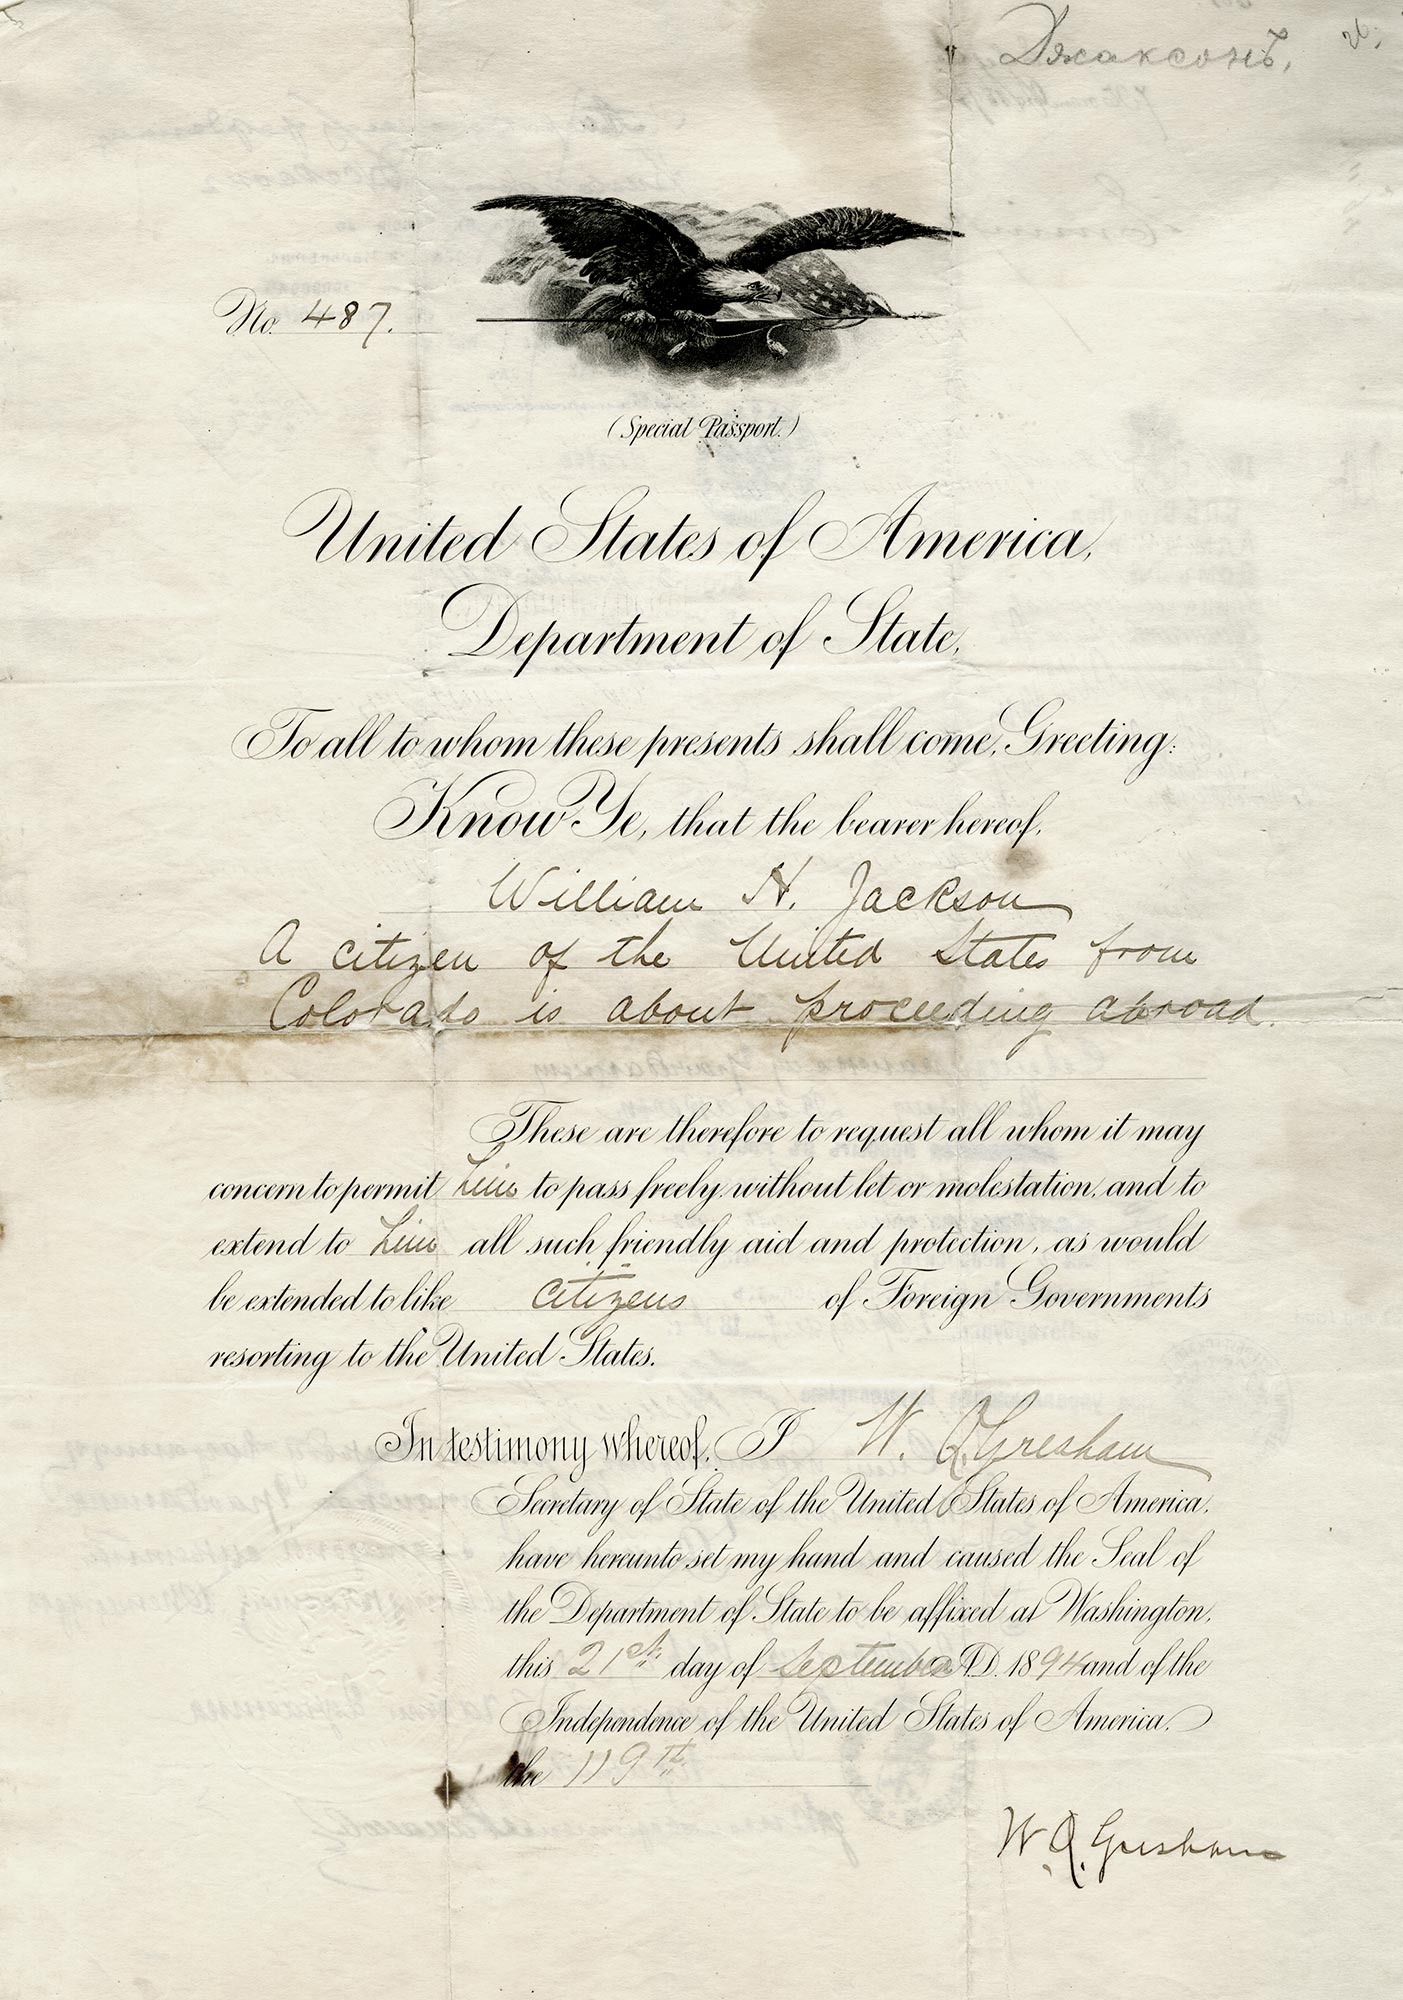 Джаксонъ,
No. 487.
(Special Passport.)
United States of America,
Department of State,
To all to whom these presents shall come, Greeting:
Know Ye, that the bearer hereof,
William H. Jackson
A citizen of the United States from
Colorado is about proceeding abroad.
These are therefore to request all whom it may
concern to permit him to pass freely, without let or molestation, and to
extend to him all such friendly aid and protection, as would
be extended to like citizens of Foreign Governments
resorting to the United States.
In testimony whereof, I W. Q. Gresham
Secretary of State of the United States of America,
have hereunto set my hand and caused the Seal of
the Department of State to be affixed at Washington,
this 21st day of September A.D. 1894 and of the
Independence of the United States of America,
the 119th
W. Q. Gresham